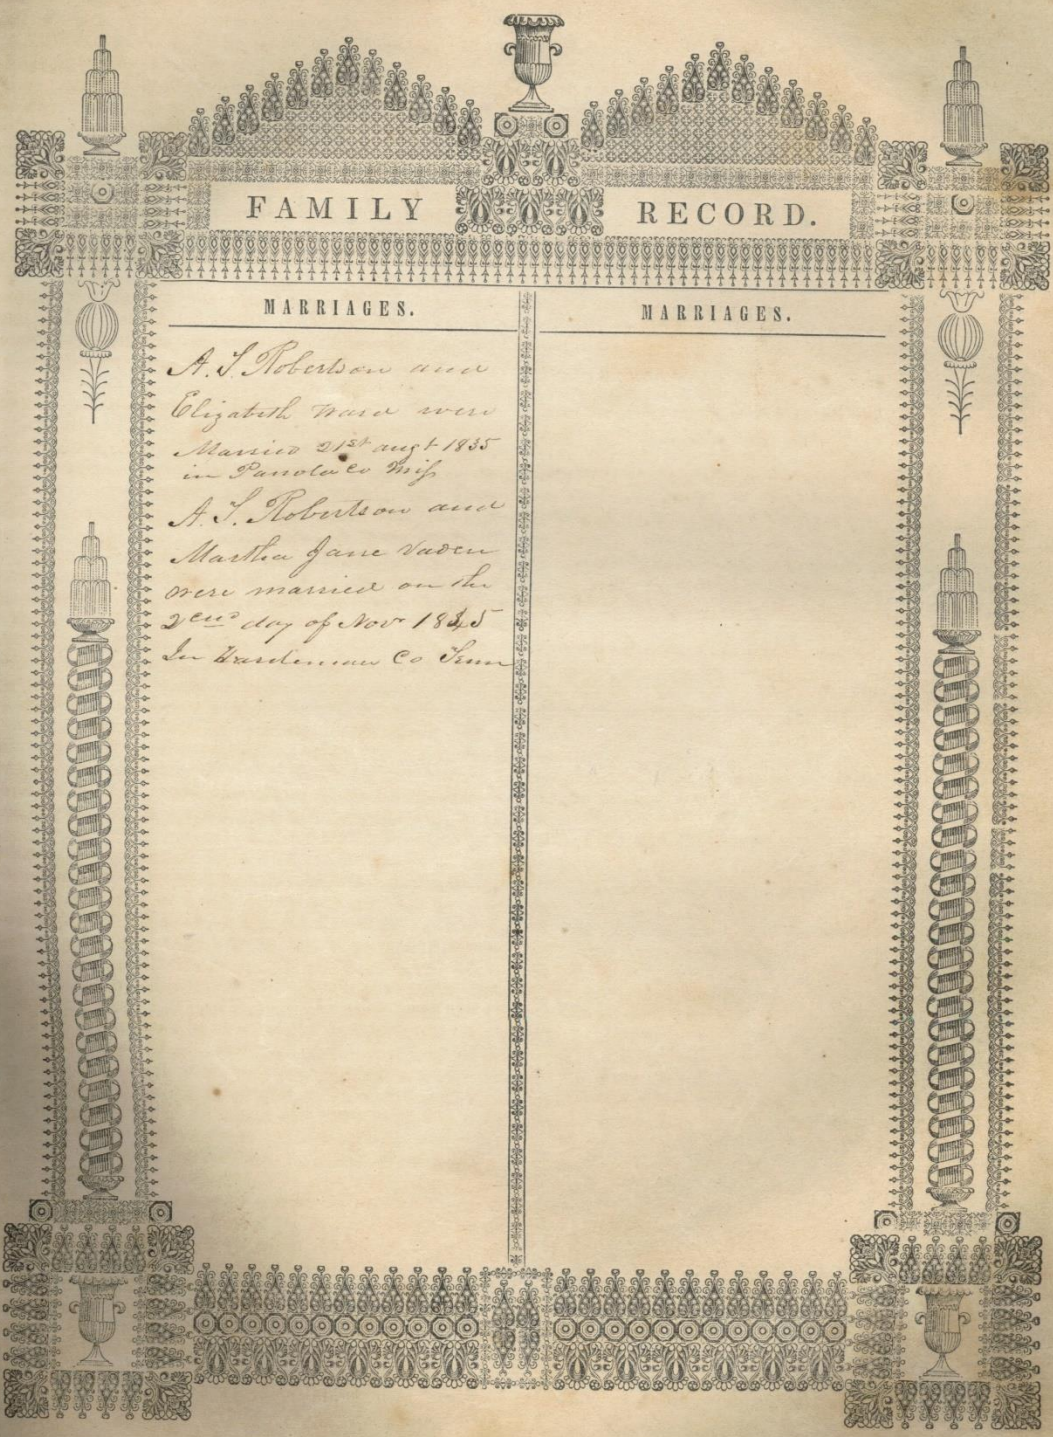 FAMILY RECORD.
MARRIAGES.
A. S. Robertson and
Elizabeth Ward were
Married 21st augt 1835
in Panola Co Miss
A. S. Robertson and
Martha Jane Vaden
were married on the
2cnd day of Nov 1845
In Hardeman Co Tenn
MARRIAGES.